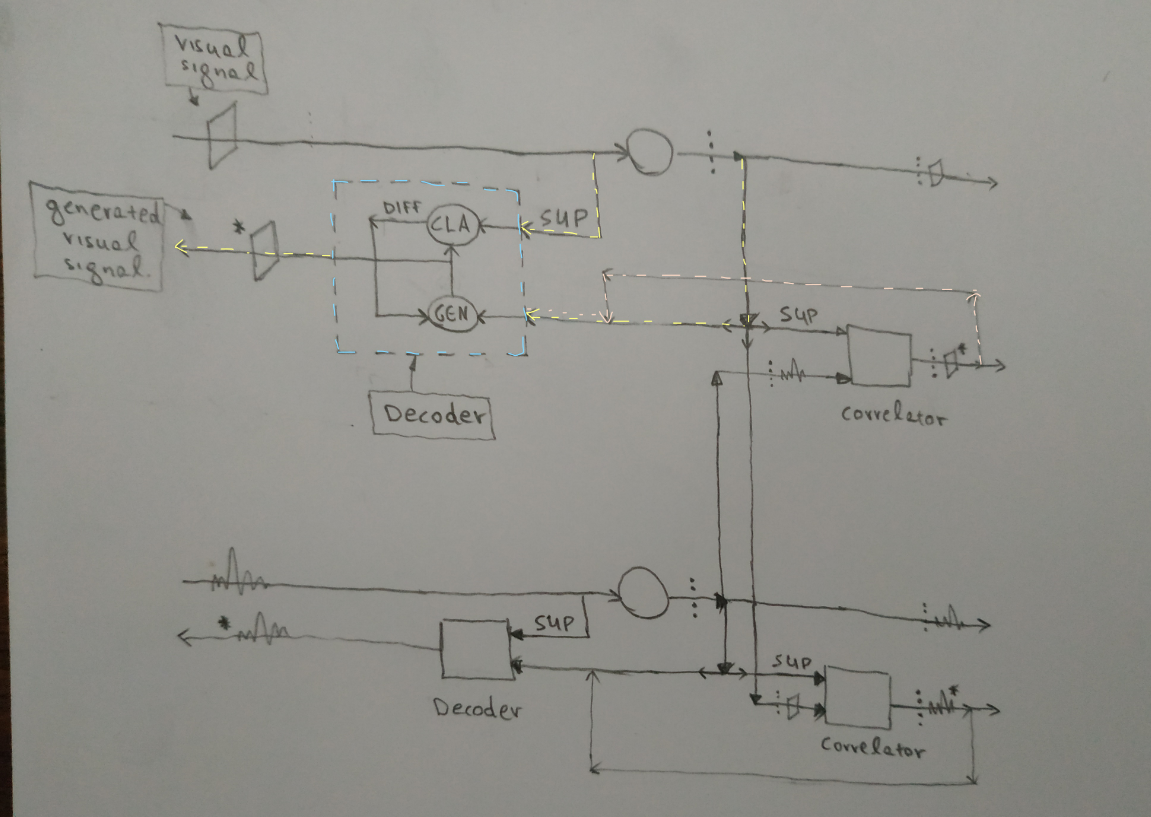 visual
signal
generated
visual
signal.
*
DIFF
CLA
SUP
GEN
SUP
*
Correlator
Decoder
*
SUP
Decoder
SUP
*
Correlator